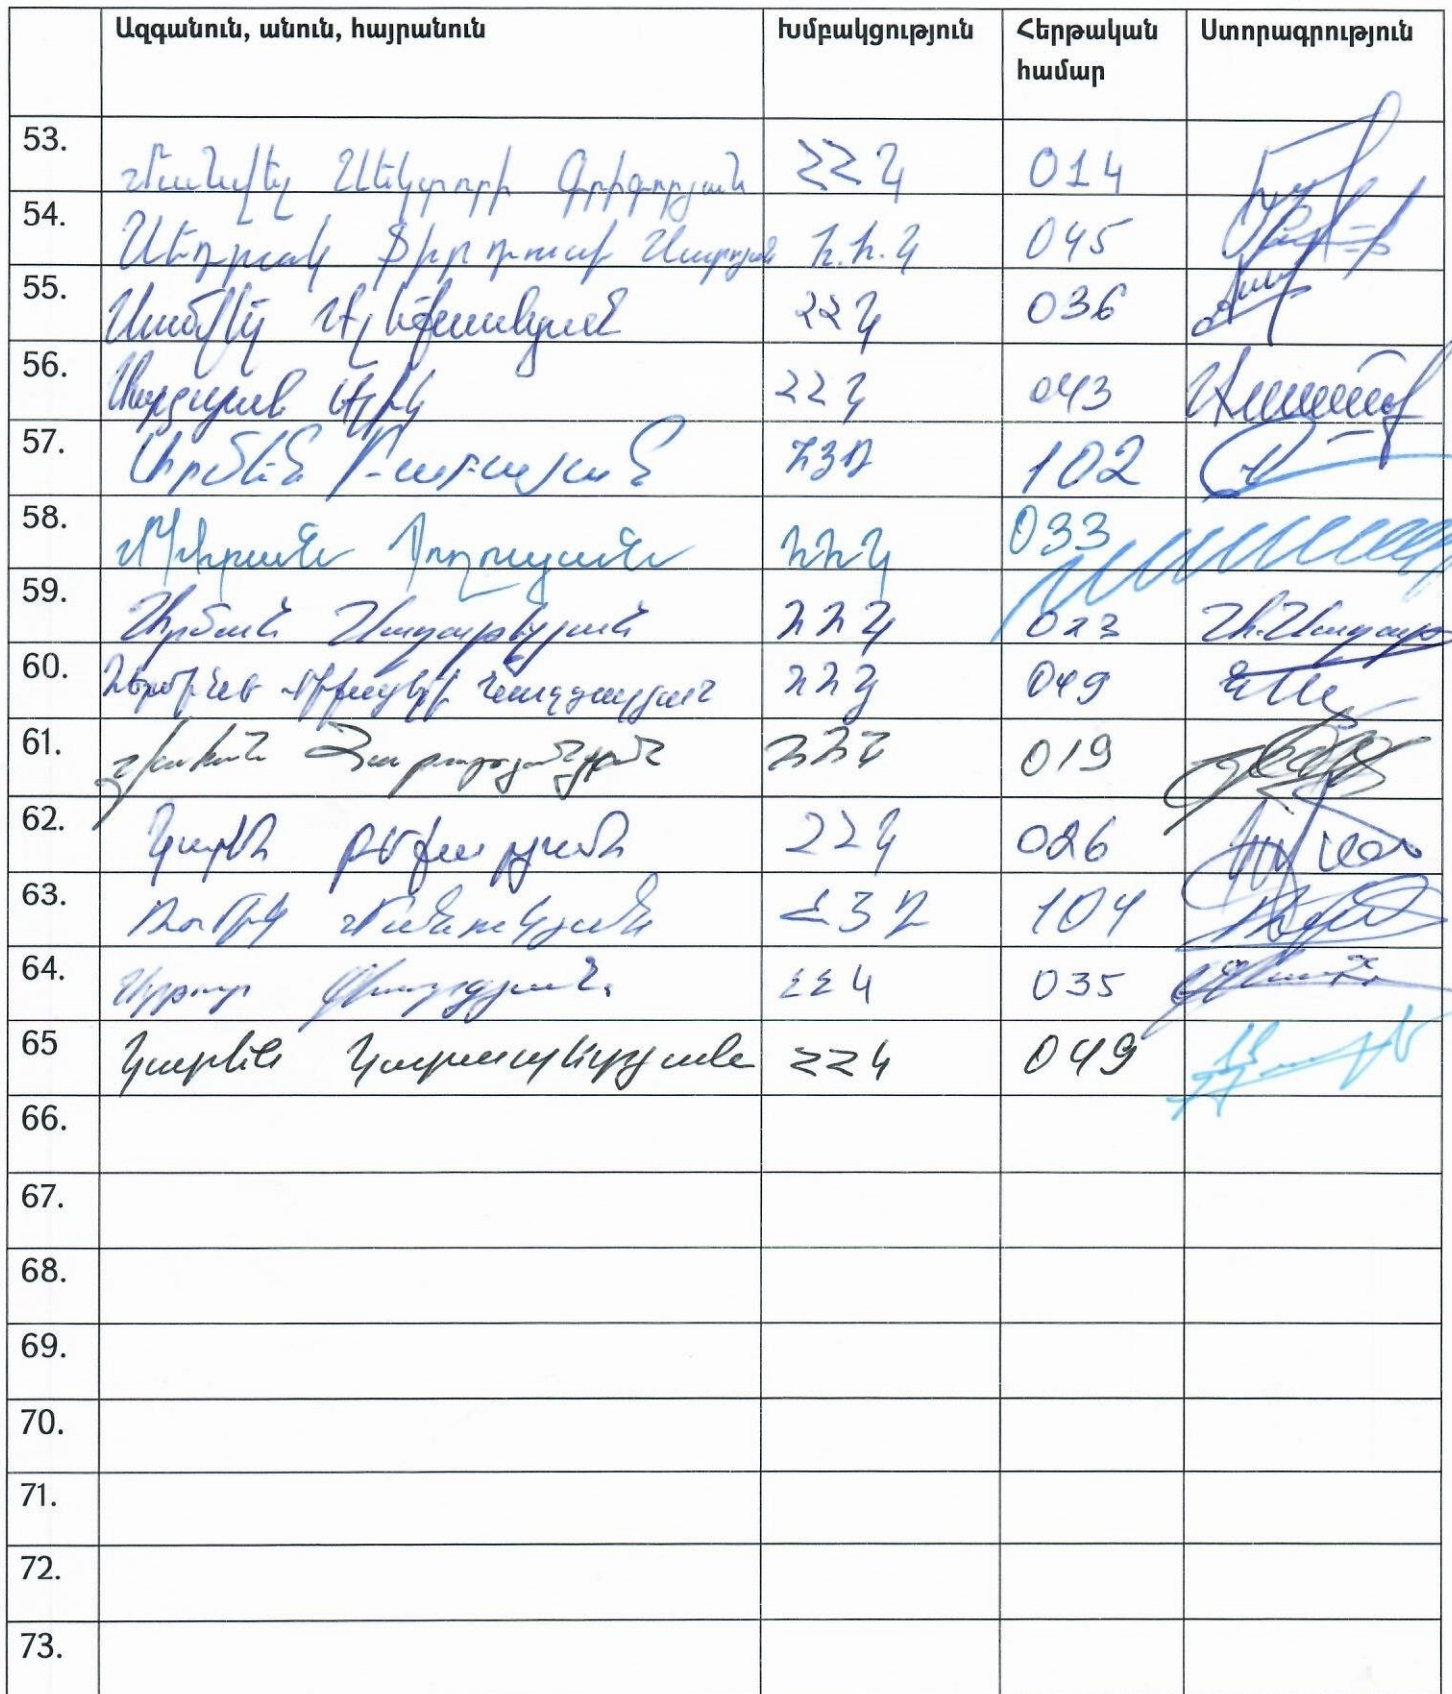 Ազգանուն, անուն, հայրանուն Խմբակցություն Հերթական համար Ստորագրություն
53. Մանվել Վեկտորի Գրիգորյան ՀՀԿ 014
54. Սեդրակ Ֆիրդուսի Սարոյան Հ.Հ.Կ 045
55. Սամվել Ալեքսանյան ՀՀԿ 036
56. Սարգսյան ՀՀԿ 043
57. Արմեն ՀՅԴ 102
58. Միքրան Պողոսյան ՀՀԿ 033
59. Արման Սաղաթելյան ՀՀԿ 023
60. Հերմինե Միքայելի Նաղդալյան ՀՀԿ 049
61. ՀՀԿ 019
62. Կարեն Բեքարյան ՀՀԿ 026
63. Ռոմիկ Մանուկյան ՀՅԴ 104
64. Արթուր Գևորգյան ՀՀԿ 035
65 Կարեն Կարապետյան ՀՀԿ 049
66.
67.
68.
69.
70.
71.
72.
73.